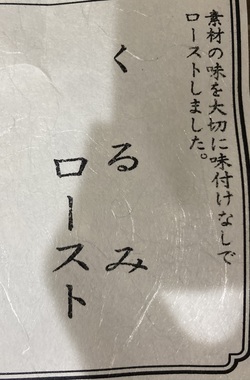 素材の味を大切に味付けなしで
ローストしました。
くるみ
ロースト